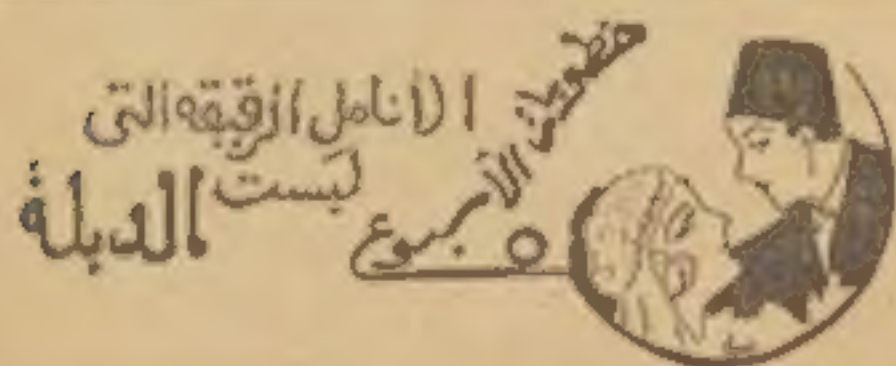 خطوبات الأسبوع
الأنامل الرقيقة التي
لبست الدبلة